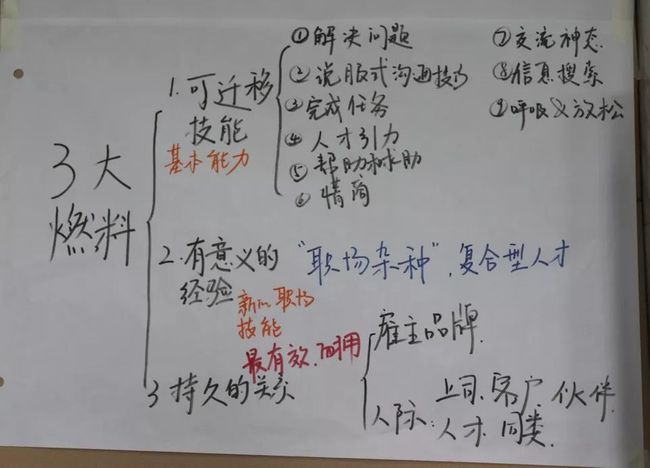 3大
燃料
1.可迁移
技能
基本能力
①解决问题
②说服式沟通技巧
③完成任务
④人才引力
⑤帮助和求助
⑥情商
⑦交流神态
⑧信息搜索
⑨呼吸&放松
2.有意义的
经验
"职场杂种",复合型人才
职场
技能
最有效.耐用
3 持久的关系
雇主品牌.
人际:上司.客户.伙伴.
人才.同类.